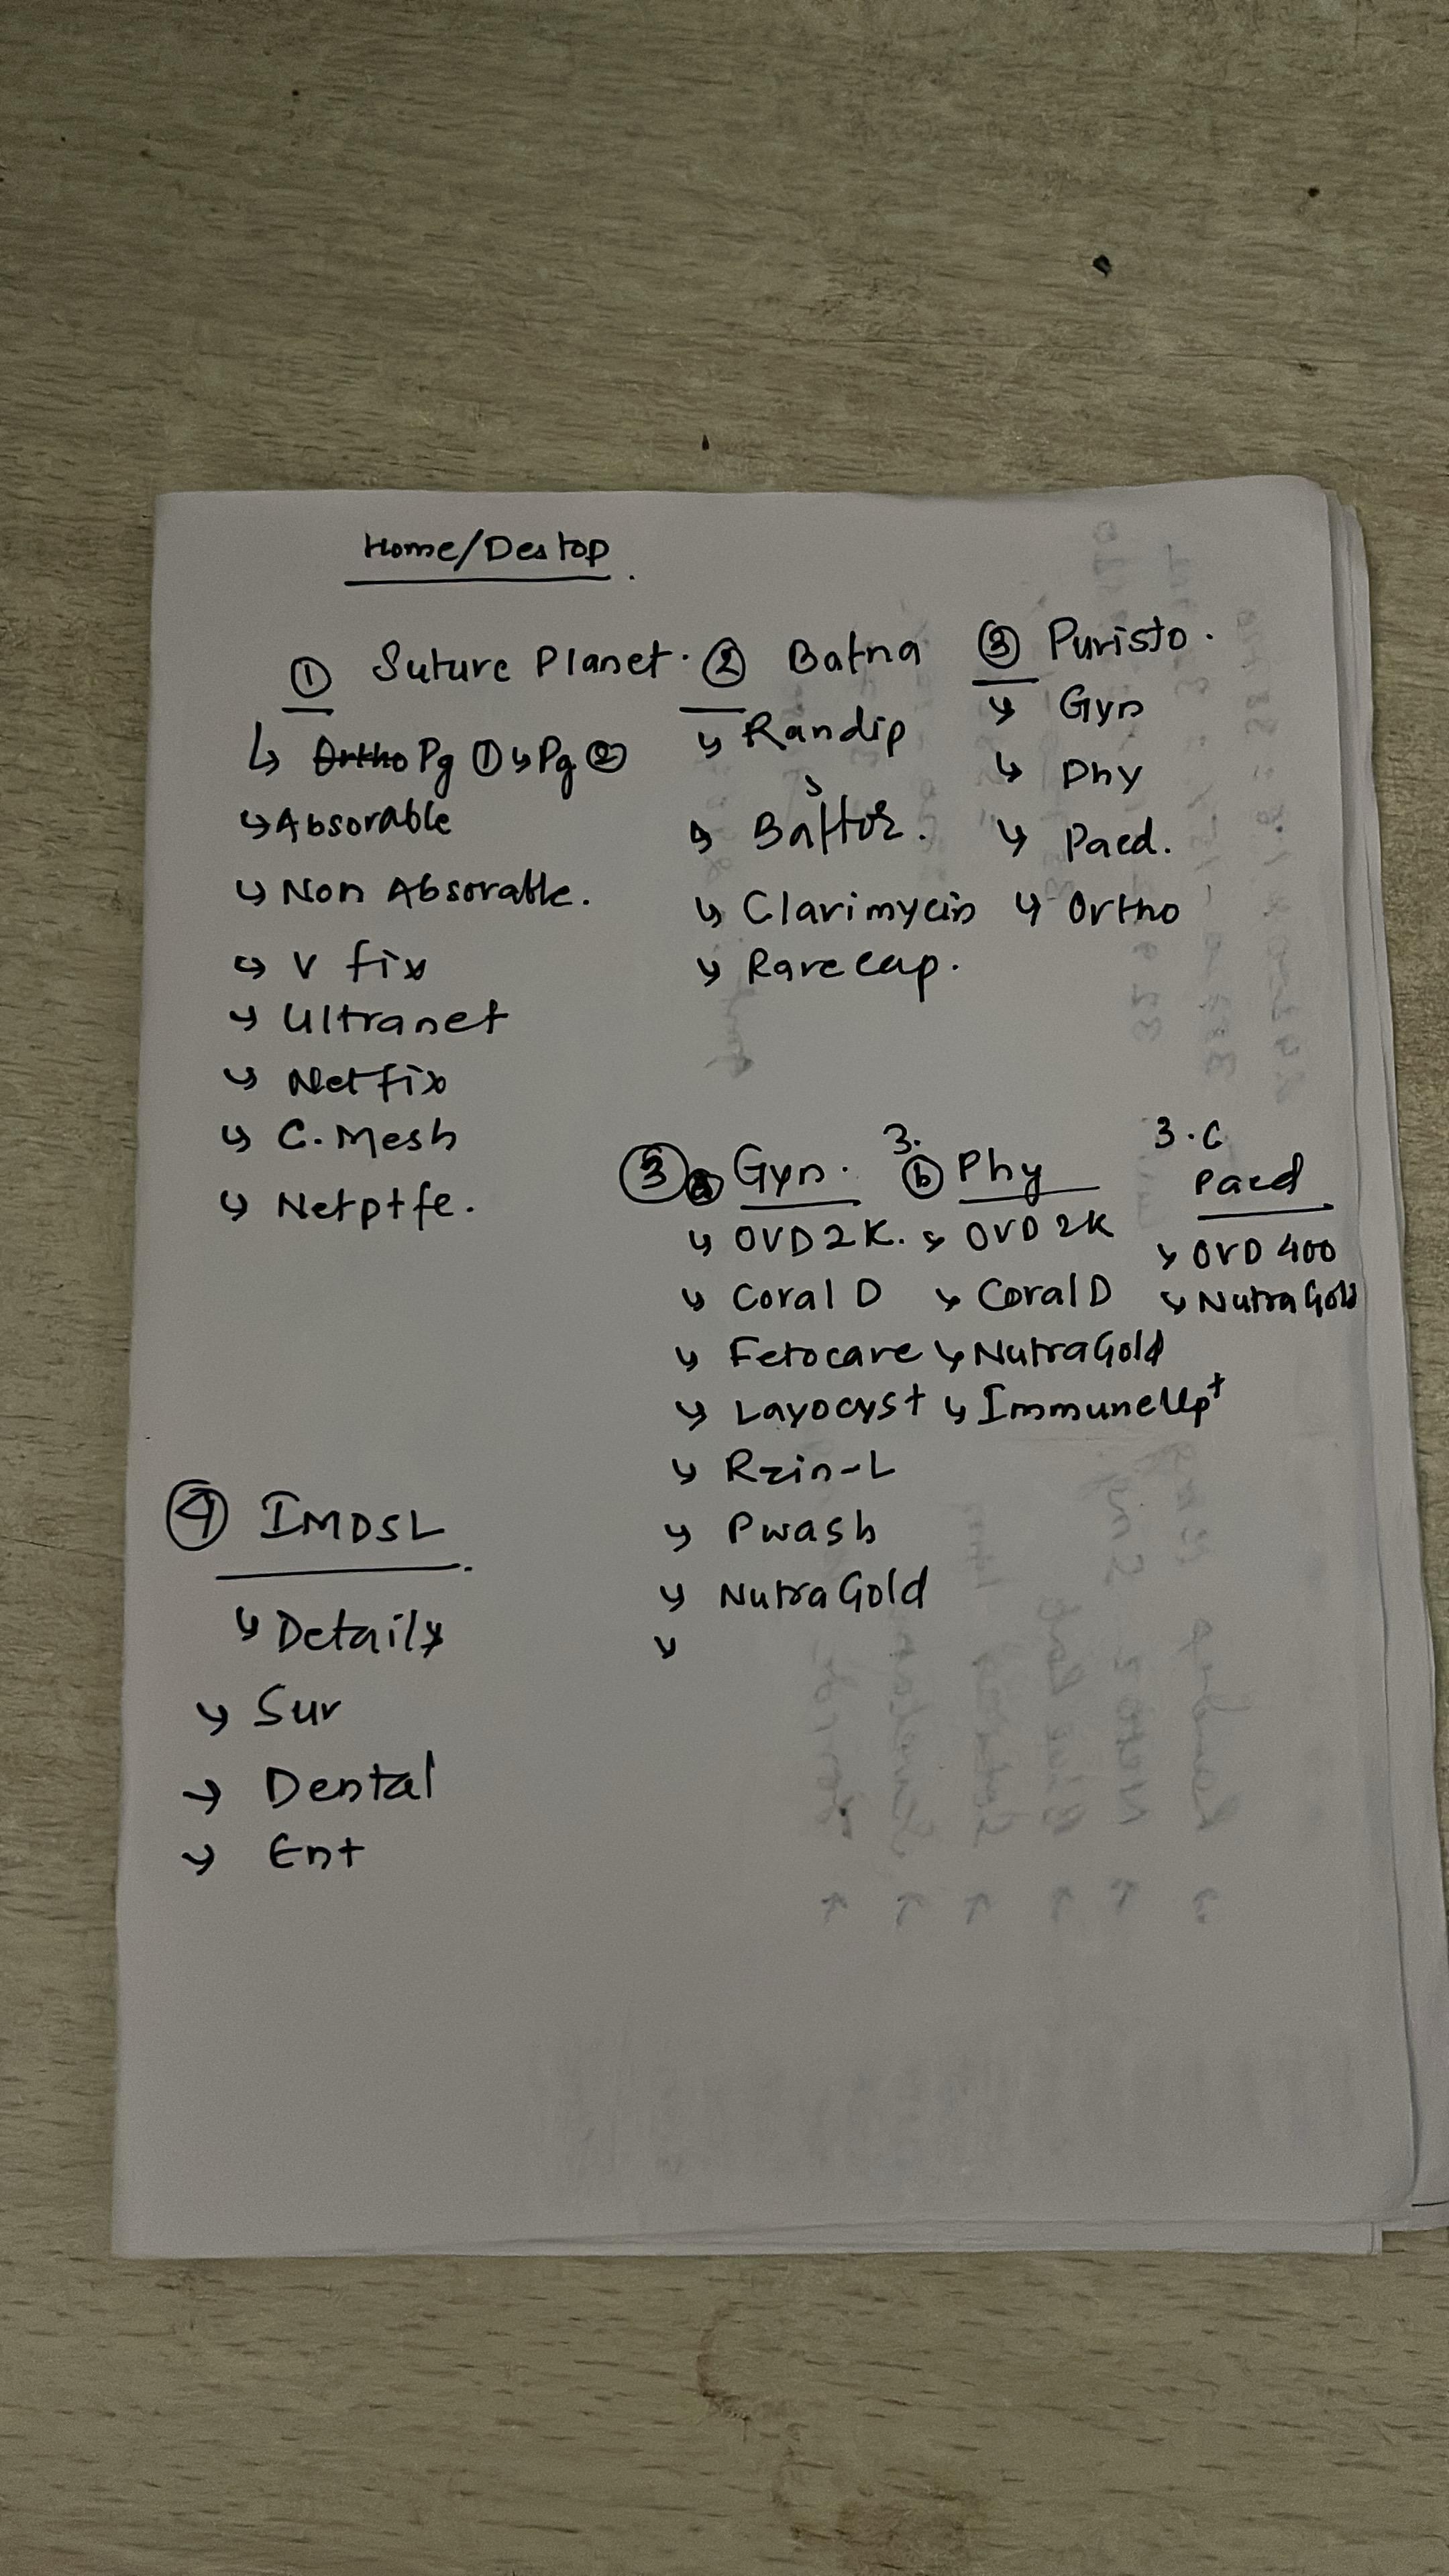 Home/Destop.
① Suture Planet.
↳ Ortho Pg ① ↳ Pg ②
↳ Absorable
↳ Non Absorable.
↳ V fix
↳ Ultranet
↳ Netfix
↳ C. Mesh
↳ Netptfe.
② Batna
↳ Randip
↳ Baftor.
↳ Clarimycin
↳ Rarecap.
③ Puristo.
↳ Gyn
↳ Phy
↳ Paed.
↳ Ortho
③ⓐ Gyn.
↳ OVD 2K.
↳ Coral D
↳ Fetocare
↳ Layocyst
↳ Rzin-L
↳ Pwash
↳ NutraGold
↳
3.ⓑ Phy
↳ OVD 2K
↳ Coral D
↳ NutraGold
↳ ImmuneUp+
3.C
Paed
↳ OVD 400
↳ NutraGold
④ IMDSL.
↳ Details
↳ Sur
→ Dental
↳ Ent